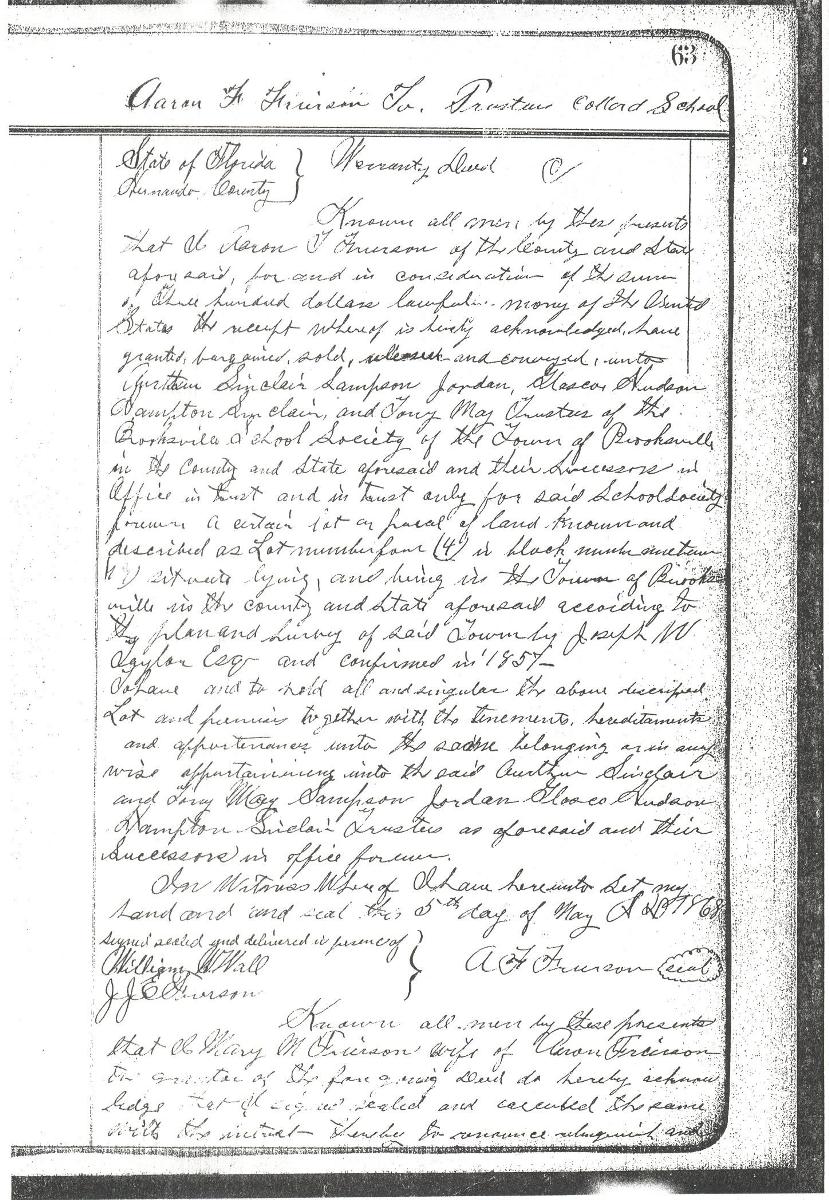 63
Aaron F Frierson To. Trustees Collord School
State of Florida
Hernando County
Warranty Deed
Known all men by these presents
that I Aaron T Frierson of the County and State
aforesaid, for and in consideration of the sum
of Three hundred dollars lawful mony of the United
States the receipt whereof is hereby acknowledged, have
granted, bargained, sold, and conveyed, unto
Aurthur Sinclair Sampson Jordan, Glascoe Hudson
Hampton Sinclair, and Tony May Trustees of the
Brooksville School Society of the Town of Brooksville
in the County and State aforesaid and their Successors in
Office in trust and in trust only for said School society
forever a certain lot or parcel of land known and
described as Lot number four (4) in block
situate lying, and being in the Town of Brooks
ville in the county and State aforesaid according to
the plan and Survey of said Town by Joseph W
Taylor Esqr and confirmed in 1857
To have and to hold all and singular the above discriped
Lot and premises together with the tenements, hereditaments
and appertenances unto the same belonging or in any
wise appertaining unto the said Aurthur Sinclair
and Tony May Sampson Jordan Glosco Hudson
Hampton Sinclair Trustees as aforesaid and their
Successors in office forever.
In Witness Whereof I have hereunto set my
hand and and seal this 5th day of May A D 1868
signed sealed and delivered in presence of
William W Wall
A F Frierson seal
J J E Frierson
Known all men by these presents
that I Mary M Frierson wife of Aaron Frierson
the grantor of the foregoing Deed do hereby acknow
ledge that I signed sealed and executed the same
with the intent thereby to renounce relinquish and